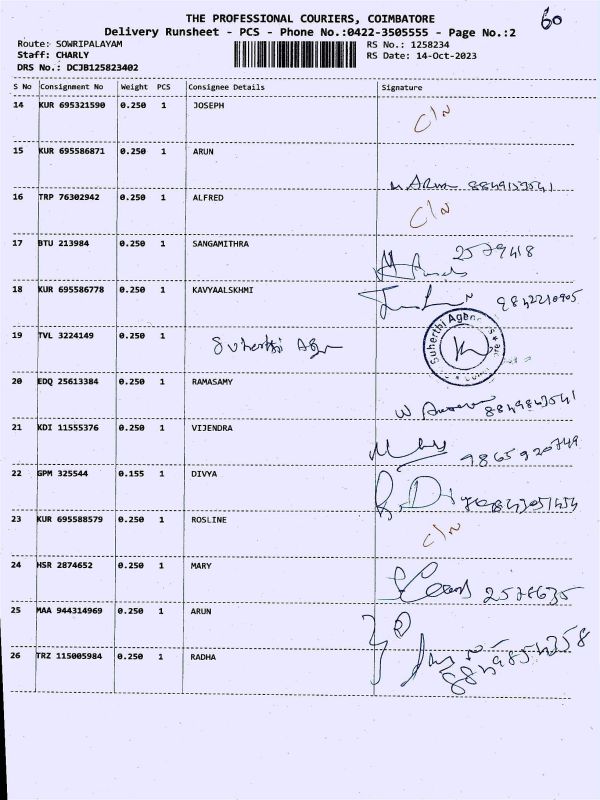 THE PROFESSIONAL COURIERS, COIMBATORE
60
Delivery Runsheet - PCS - Phone No.:0422-3505555 - Page No.:2
Route: SOWRIPALAYAM RS No.: 1258234
Staff: CHARLY RS Date: 14-Oct-2023
DRS No.: DCJB125823402
S No Consignment No Weight PCS Consignee Details Signature
14 KUR 695321590 0.250 1 JOSEPH C/N
15 KUR 695586871 0.250 1 ARUN
16 TRP 76302942 0.250 1 ALFRED C/N
17 BTU 213984 0.250 1 SANGAMITHRA 2579418
18 KUR 695586778 0.250 1 KAVYAALSKHMI 9842210905
19 TVL 3224149 0.250 1 Suherthi Suherthi
20 EDQ 25613384 0.250 1 RAMASAMY
21 KDI 11555376 0.250 1 VIJENDRA 9865920749
22 GPM 325544 0.155 1 DIVYA
23 KUR 695588579 0.250 1 ROSLINE C/N
24 HSR 2874652 0.250 1 MARY 2578635
25 MAA 944314969 0.250 1 ARUN
26 TRZ 115005984 0.250 1 RADHA